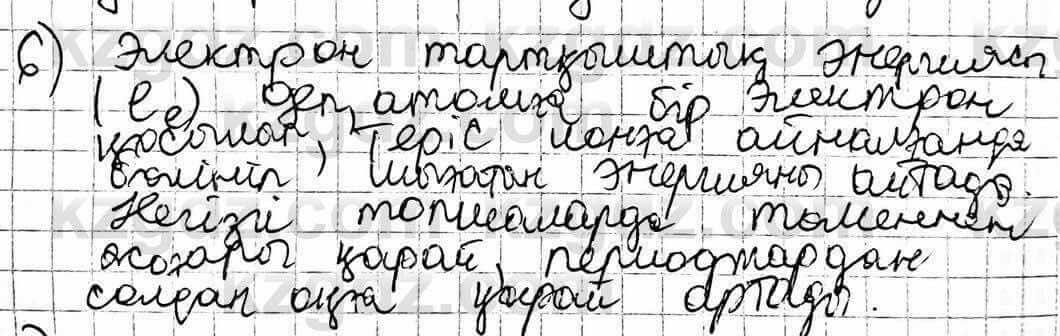 6) Электрон тартқыштық энергиясы
(Ee) деп атомға бір электрон
қосылып, теріс ионға айналғанда
бөлініп шығатын энергияны айтады.
Негізгі топшаларда төменнен
жоғары қарай, периодтардан
солдан оңға қарай артады.